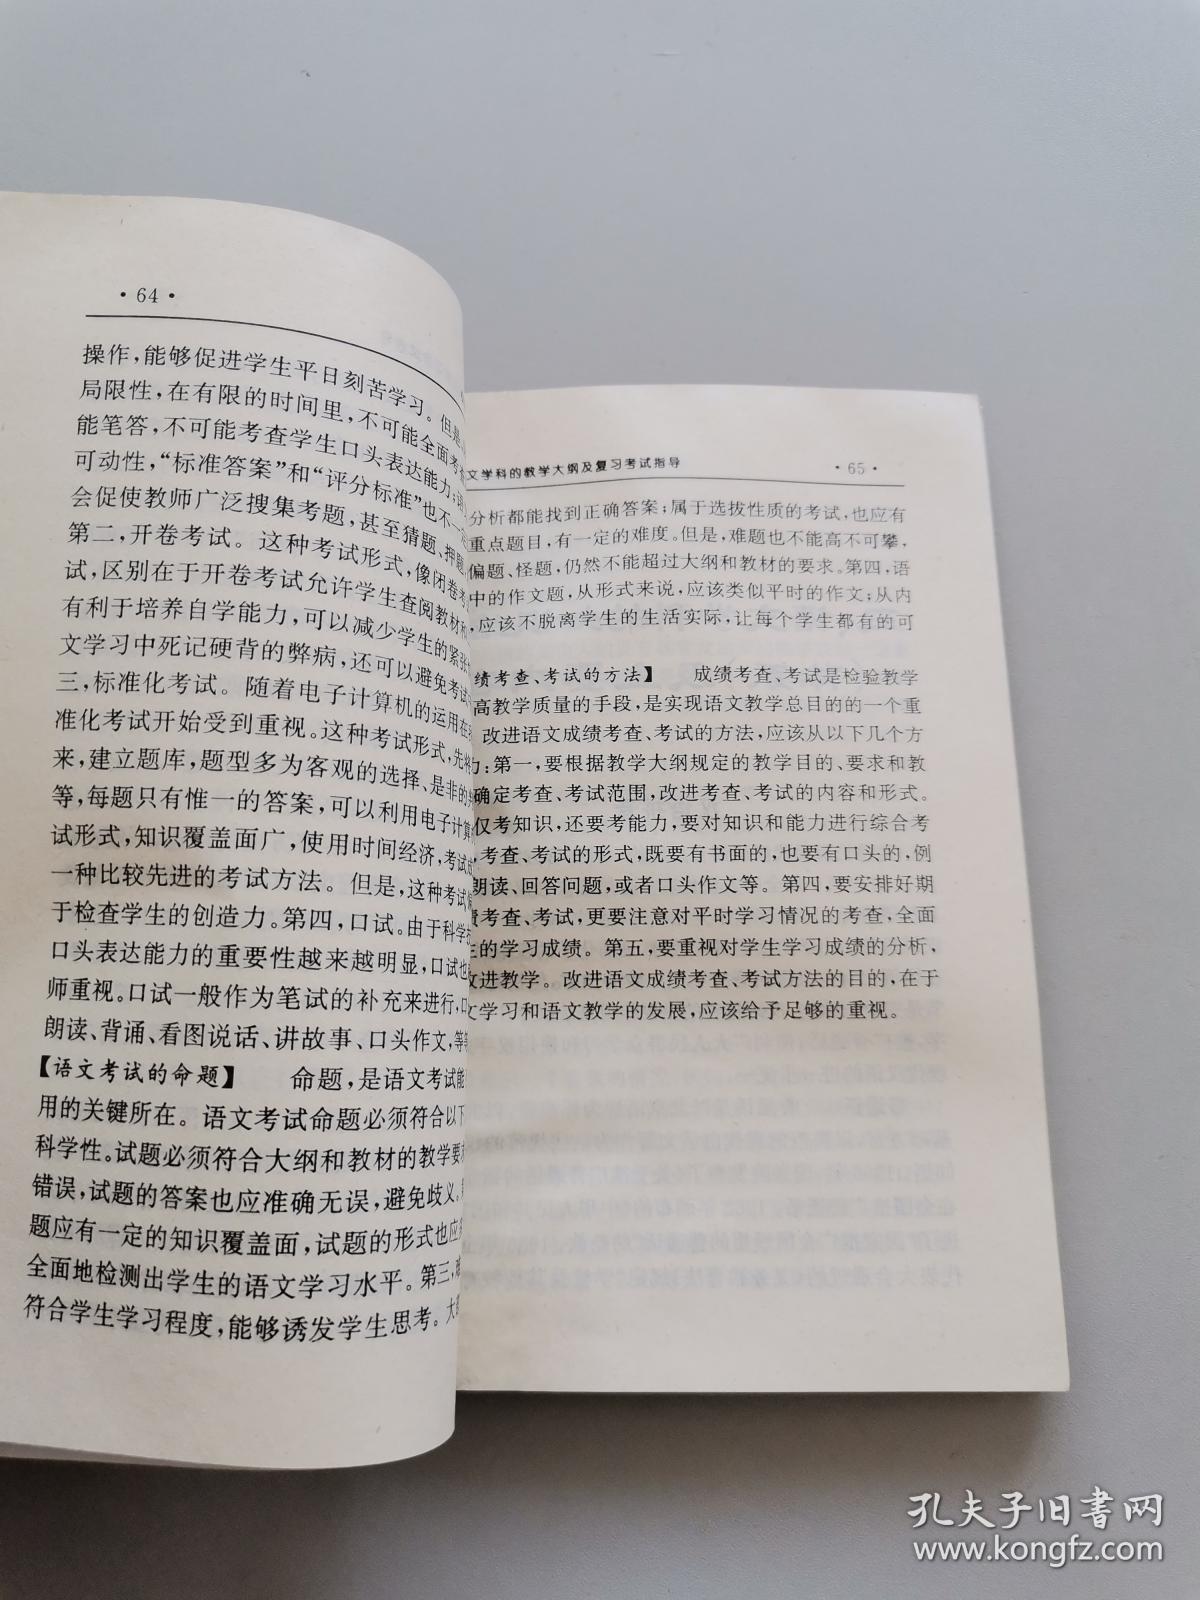 · 64 ·
操作，能够促进学生平日刻苦学习。但是，
局限性，在有限的时间里，不可能全面考
能笔答，不可能考查学生口头表达能力；
可动性，“标准答案”和“评分标准”也不一
会促使教师广泛搜集考题，甚至猜题、押题
第二，开卷考试。这种考试形式，像闭卷考
试，区别在于开卷考试允许学生查阅教材和
有利于培养自学能力，可以减少学生的紧张
文学习中死记硬背的弊病，还可以避免考试
三，标准化考试。随着电子计算机的运用在
准化考试开始受到重视。这种考试形式，先将
来，建立题库，题型多为客观的选择、是非的
等，每题只有惟一的答案，可以利用电子计算
试形式，知识覆盖面广，使用时间经济，考试
一种比较先进的考试方法。但是，这种考试
于检查学生的创造力。第四，口试。由于科学
口头表达能力的重要性越来越明显，口试也
师重视。口试一般作为笔试的补充来进行，口
朗读、背诵、看图说话、讲故事、口头作文，等等
【语文考试的命题】　命题，是语文考试能
用的关键所在。语文考试命题必须符合以下
科学性。试题必须符合大纲和教材的教学要
错误，试题的答案也应准确无误，避免歧义。
题应有一定的知识覆盖面，试题的形式也应
全面地检测出学生的语文学习水平。第三，
符合学生学习程度，能够诱发学生思考。大
文学科的教学大纲及复习考试指导 · 65 ·
分析都能找到正确答案；属于选拔性质的考试，也应有
重点题目，有一定的难度。但是，难题也不能高不可攀，
偏题、怪题，仍然不能超过大纲和教材的要求。第四，语
中的作文题，从形式来说，应该类似平时的作文；从内
，应该不脱离学生的生活实际，让每个学生都有的可
绩考查、考试的方法】　成绩考查、考试是检验教学
高教学质量的手段，是实现语文教学总目的的一个重
改进语文成绩考查、考试的方法，应该从以下几个方
力：第一，要根据教学大纲规定的教学目的、要求和教
确定考查、考试范围，改进考查、考试的内容和形式。
仅考知识，还要考能力，要对知识和能力进行综合考
，考查、考试的形式，既要有书面的，也要有口头的，例
朗读、回答问题，或者口头作文等。第四，要安排好期
绩考查、考试，更要注意对平时学习情况的考查，全面
生的学习成绩。第五，要重视对学生学习成绩的分析，
改进教学。改进语文成绩考查、考试方法的目的，在于
文学习和语文教学的发展，应该给予足够的重视。
孔夫子旧书网
www.kongfz.com